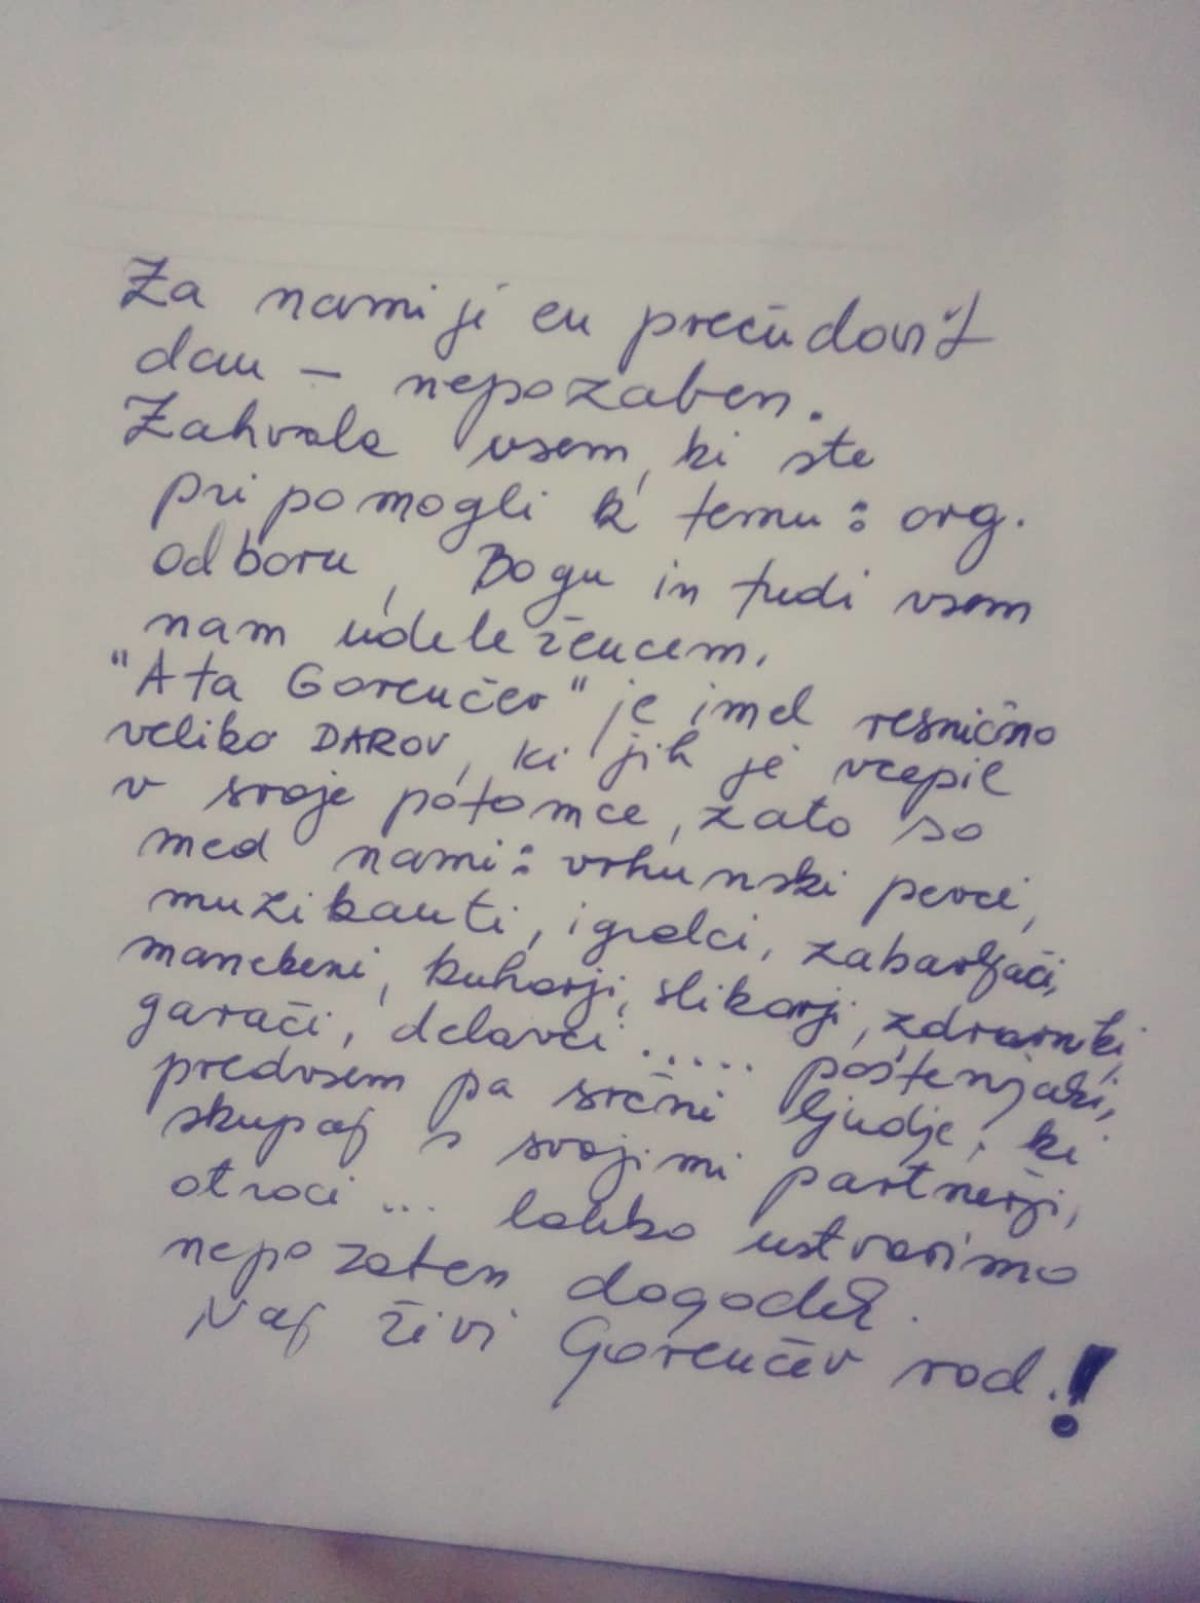 Za nami je en prečudovit
dan – nepozaben.
Zahvala vsem, ki ste
pripomogli k temu: org.
odboru, Bogu in tudi vsem
nam udeležencem.
"Ata Gorenčev" je imel resnično
veliko DAROV, ki jih je vcepil
v svoje potomce, zato so
med nami: vrhunski pevci,
muzikanti, igralci, zabavljači,
manekeni, kuharji, slikarji, zdravniki,
garači, delavci ..... poštenjaki,
predvsem pa srčni ljudje, ki
skupaj s svojimi partnerji,
otroci ... lahko ustvarimo
nepozaben dogodek.
Naj živi Gorenčev rod!